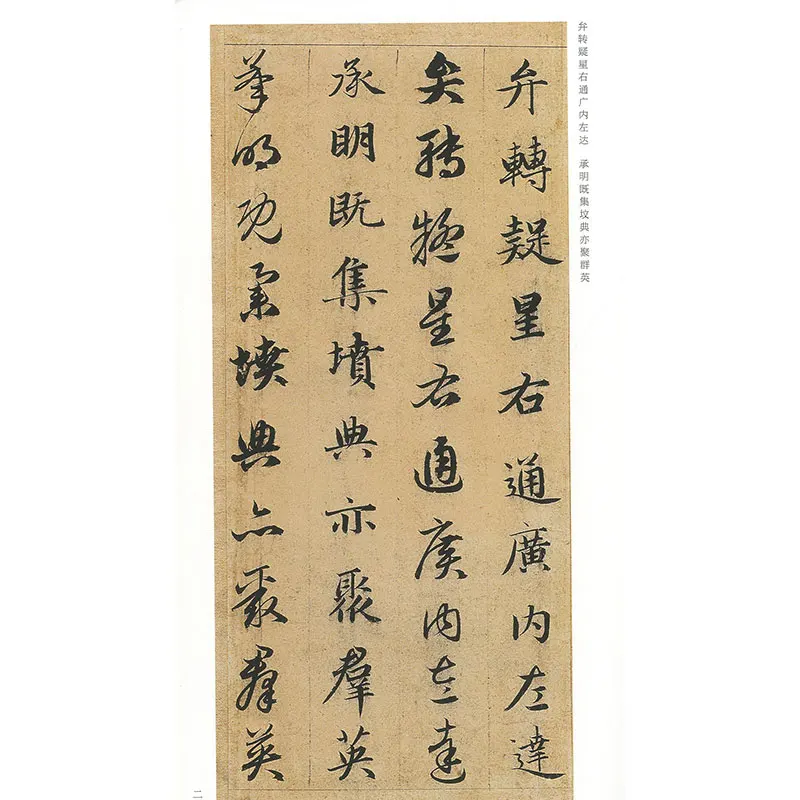 弁转疑星右通广内左达 承明既集坟典亦聚群英
弁轉疑星右通廣内左達
弁轉疑星右通廣内左達
承明既集墳典亦聚羣英
承明既集墳典亦聚羣英
二